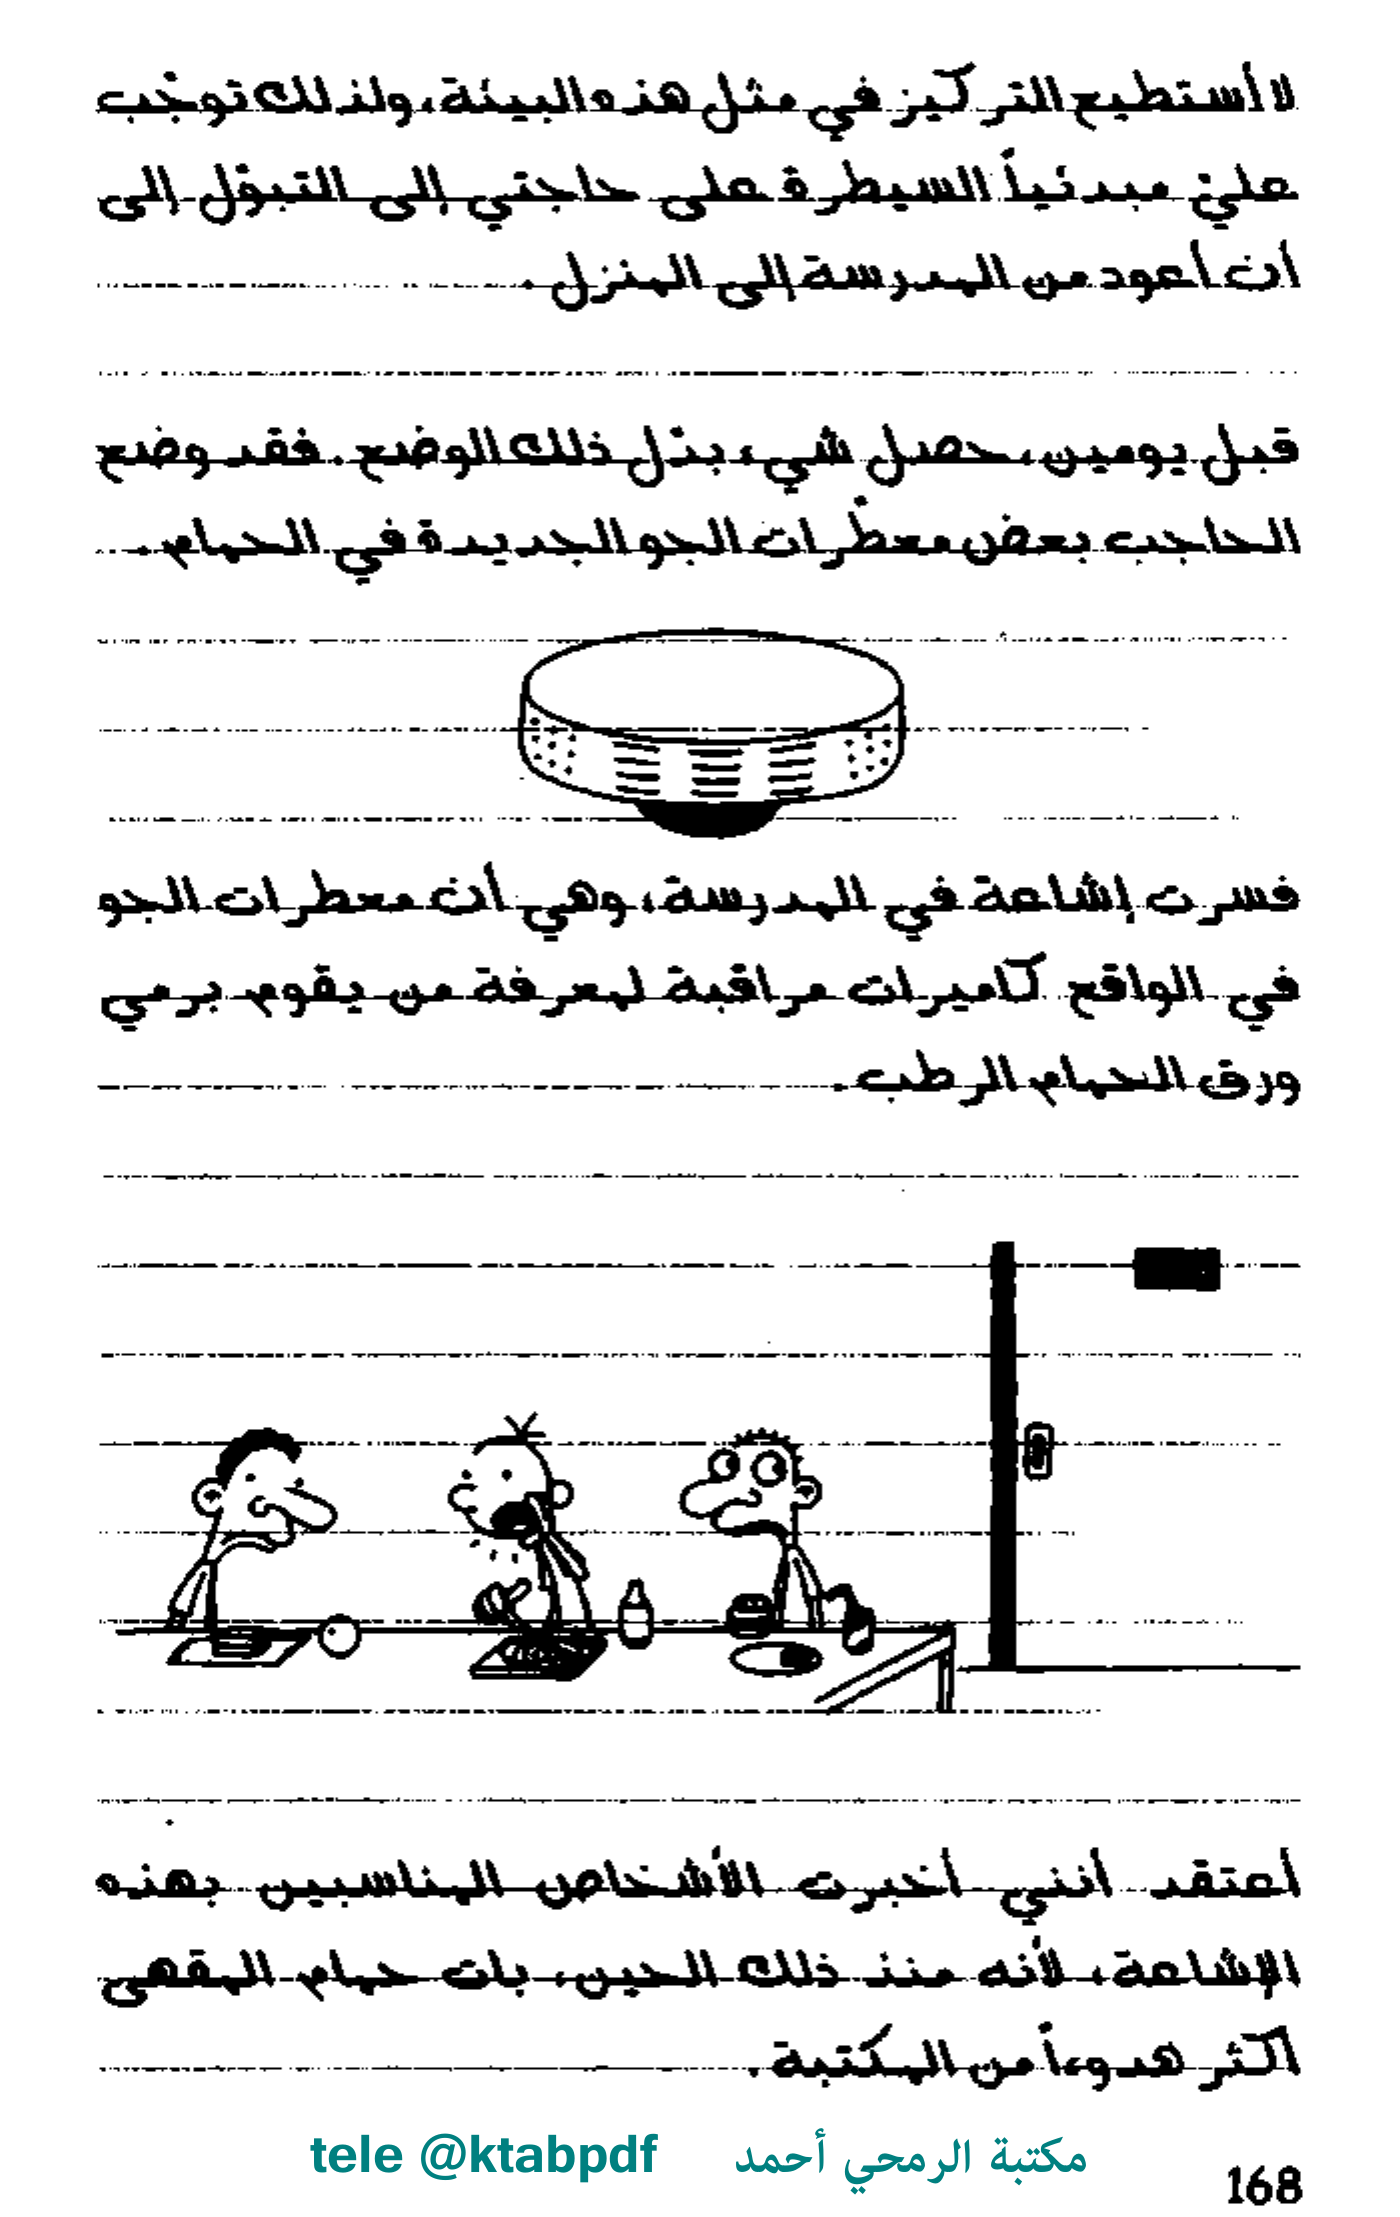 لا أستطيع التركيز في مثل هذه البيئة، ولذلك توجّب
عليّ مبدئياً السيطرة على حاجتي إلى التبوّل إلى
أن أعود من المدرسة إلى المنزل.
قبل يومين، حصل شيء بدّل ذلك الوضع. فقد وضع
الحاجب بعض معطّرات الجو الجديدة في الحمام.
فسرت إشاعة في المدرسة، وهي أن معطرات الجو
في الواقع كاميرات مراقبة لمعرفة من يقوم برمي
ورق الحمام الرطب.
أعتقد أنني أخبرت الأشخاص المناسبين بهذه
الإشاعة، لأنه منذ ذلك الحين، بات حمام المقهى
أكثر هدوءاً من المكتبة.
مكتبة الرمحي أحمد tele @ktabpdf
168